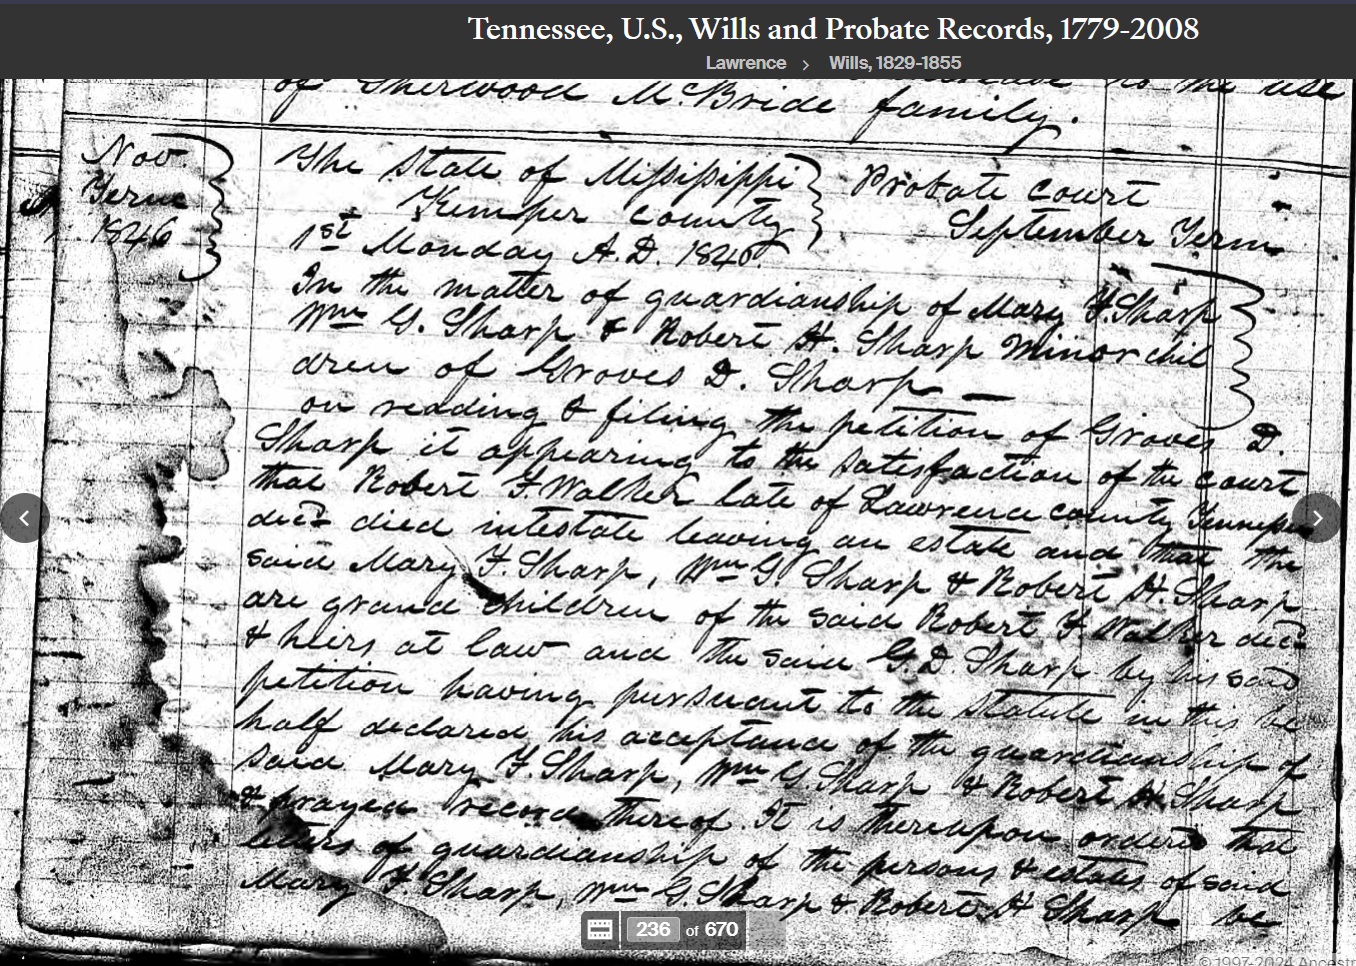 Tennessee, U.S., Wills and Probate Records, 1779-2008
Lawrence > Wills, 1829-1855
to the use
of Sherwood McBride family.
Nov
Term
1846
The State of Mississippi
Kemper County
1st Monday A.D. 1846
Probate Court
September Term
In the matter of guardianship of Mary F. Sharp
Wm G. Sharp & Robert H. Sharp minor chil
dren of Groves D. Sharp
on reading & filing the petition of Groves D.
Sharp it appearing to the satisfaction of the court
that Robert F. Walker late of Lawrence county Tennessee
decd died intestate leaving an estate and that the
said Mary F. Sharp, Wm G. Sharp & Robert H. Sharp
are grand children of the said Robert F. Walker decd
& heirs at law and the said G. D. Sharp by his said
petition having pursuant to the statute in this be
half declared his acceptance of the guardianship of
said Mary F. Sharp, Wm G. Sharp & Robert H. Sharp
& prayed record thereof. It is thereupon ordered that
letters of guardianship of the persons & estates of said
Mary F Sharp, Wm G. Sharp & Robert H Sharp be
236 of 670
© 1997-2024 Ancestr